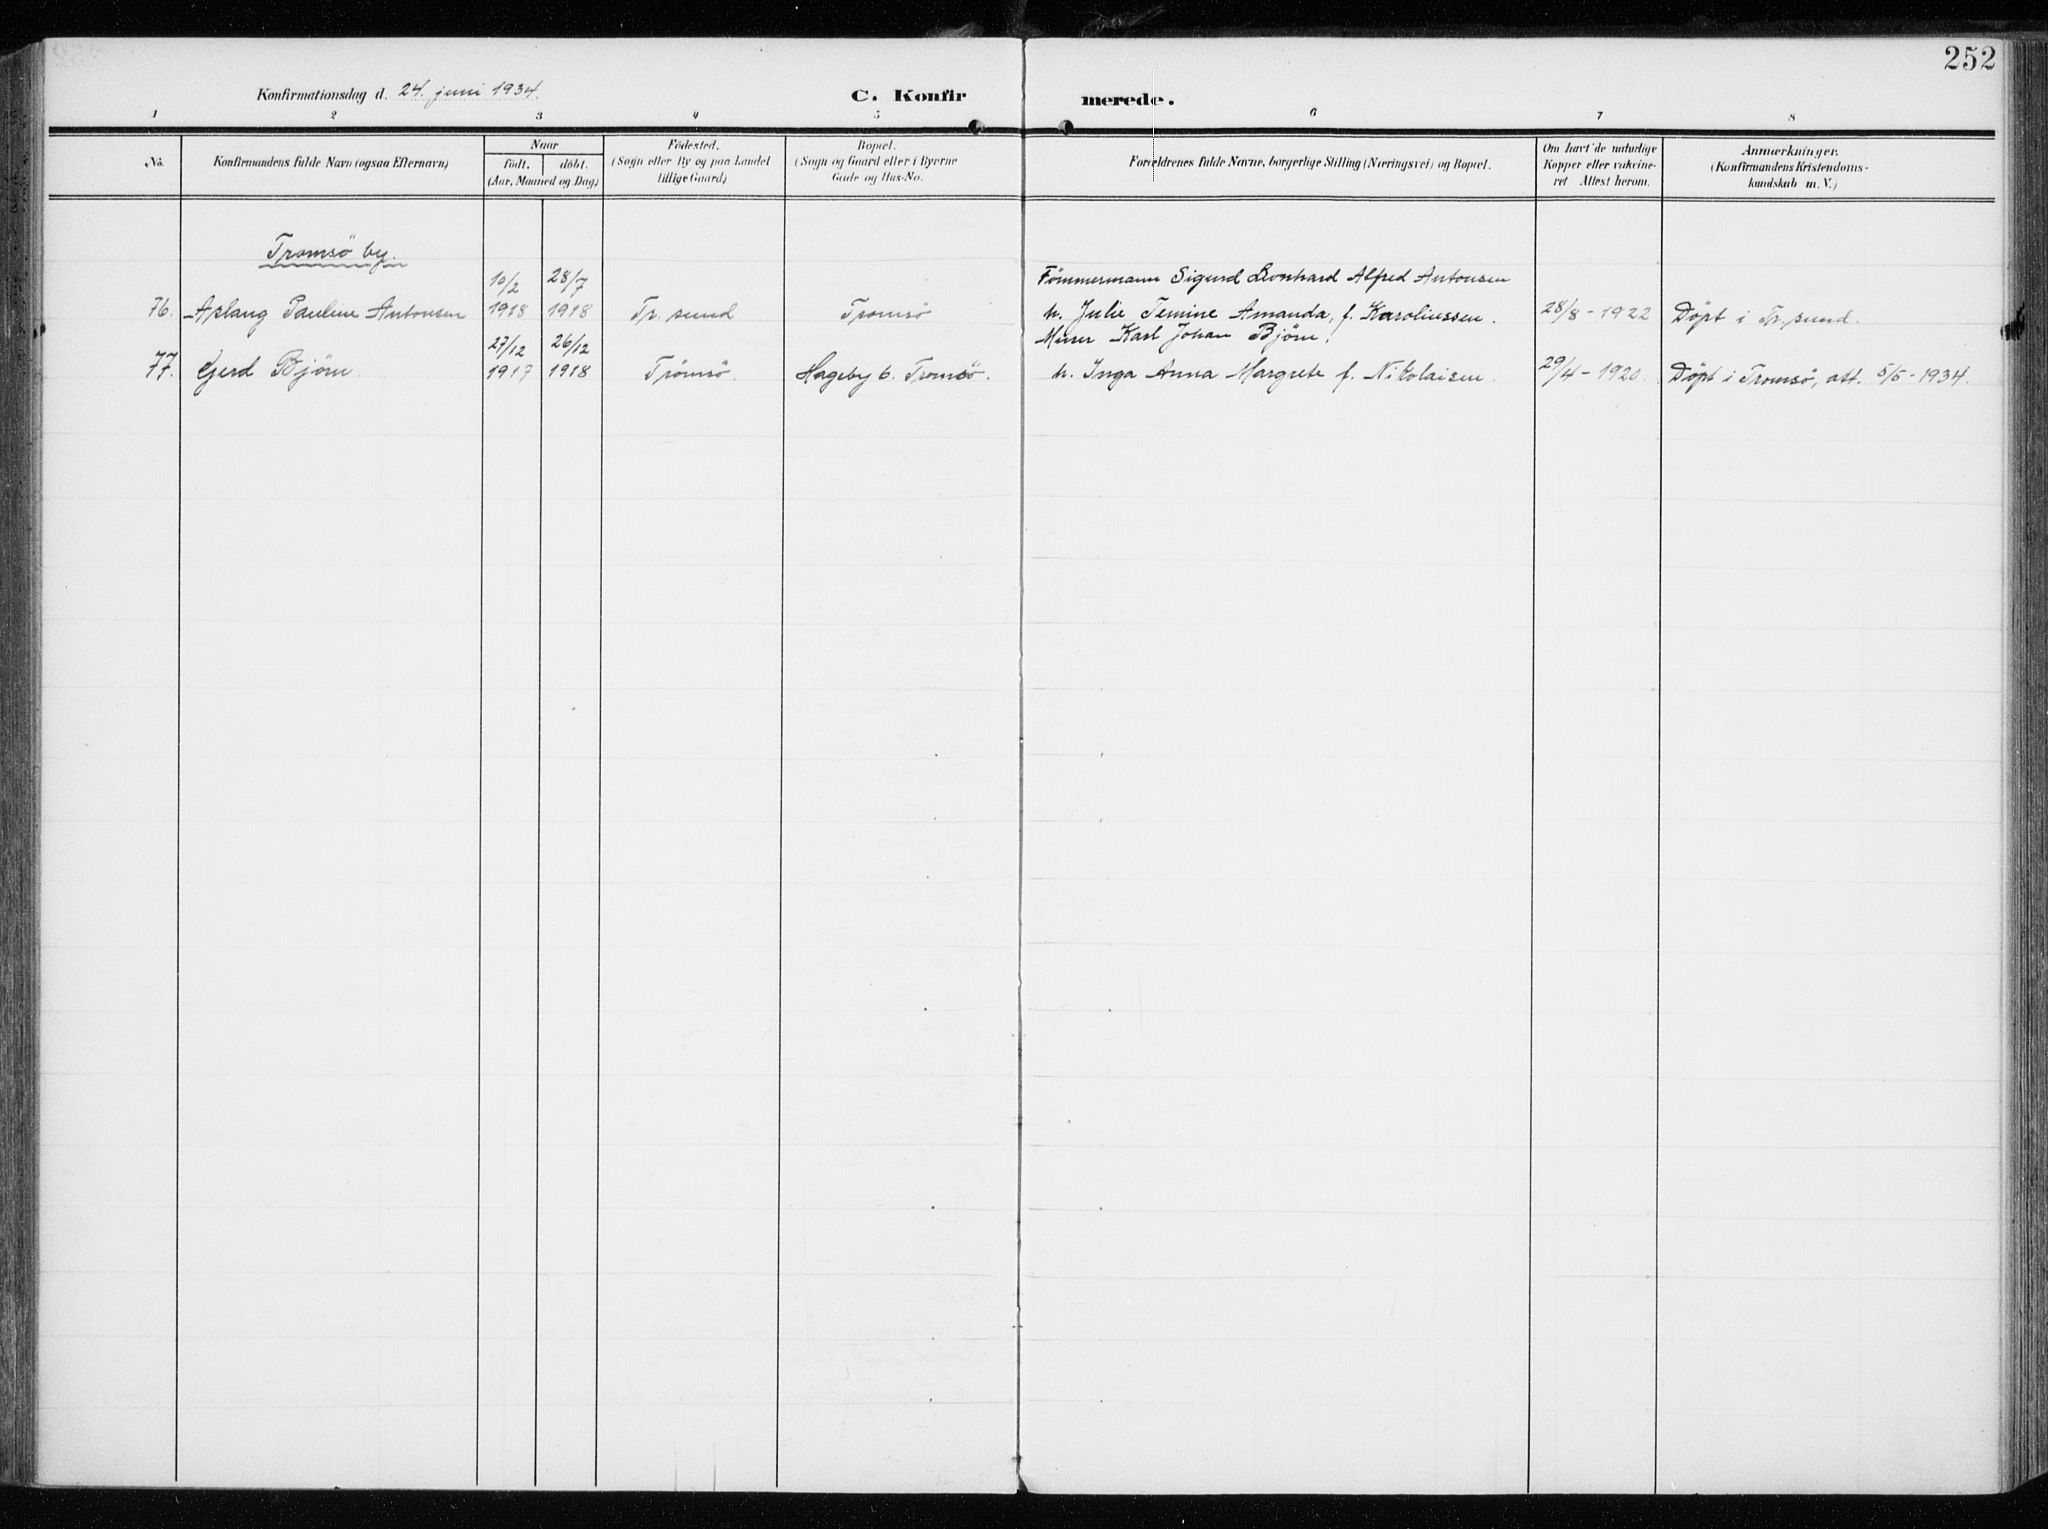 252
Konfirmationsdag d. 24. juni 1934.
C. Konfir merede.
1 2 3 4 5 6 7 8
No.
Konfirmandens fulde Navn (ogsaa Efternavn)
Naar
født. döbt.
(Aar, Maaned og Dag)
Födested.
(Sogn eller By og paa Landet
tillige Gaard)
Bopæl.
(Sogn og Gaard eller i Byerne
Gade og Hus-No.
Forældrenes fulde Navne, borgerlige Stilling (Næringsvei) og Bopæl.
Om havt de naturlige
Kopper eller vakcine-
ret Attest herom.
Anmærkninger.
(Konfirmandens Kristendoms-
kundskab m. V.)
Tromsö by.
10/2 28/7 Tömmermann Sigurd Leonhard Alfred Antonsen
76. Aslaug Pauline Antonsen 1918 1918 Tr. sund Tromsö h. Julie Temine Amanda, f. Karoliussen. 28/8 - 1922 Döpt i Tr. sund.
27/12 26/12 Murer Karl Johan Bjørn,
77. Gerd Bjørn. 1917 1918 Tromsö. Hageby 6. Tromsö. h. Inga Anna Margrete f. Nikolaisen. 29/4 - 1920. Döpt i Tromsö, att. 5/5 - 1934.